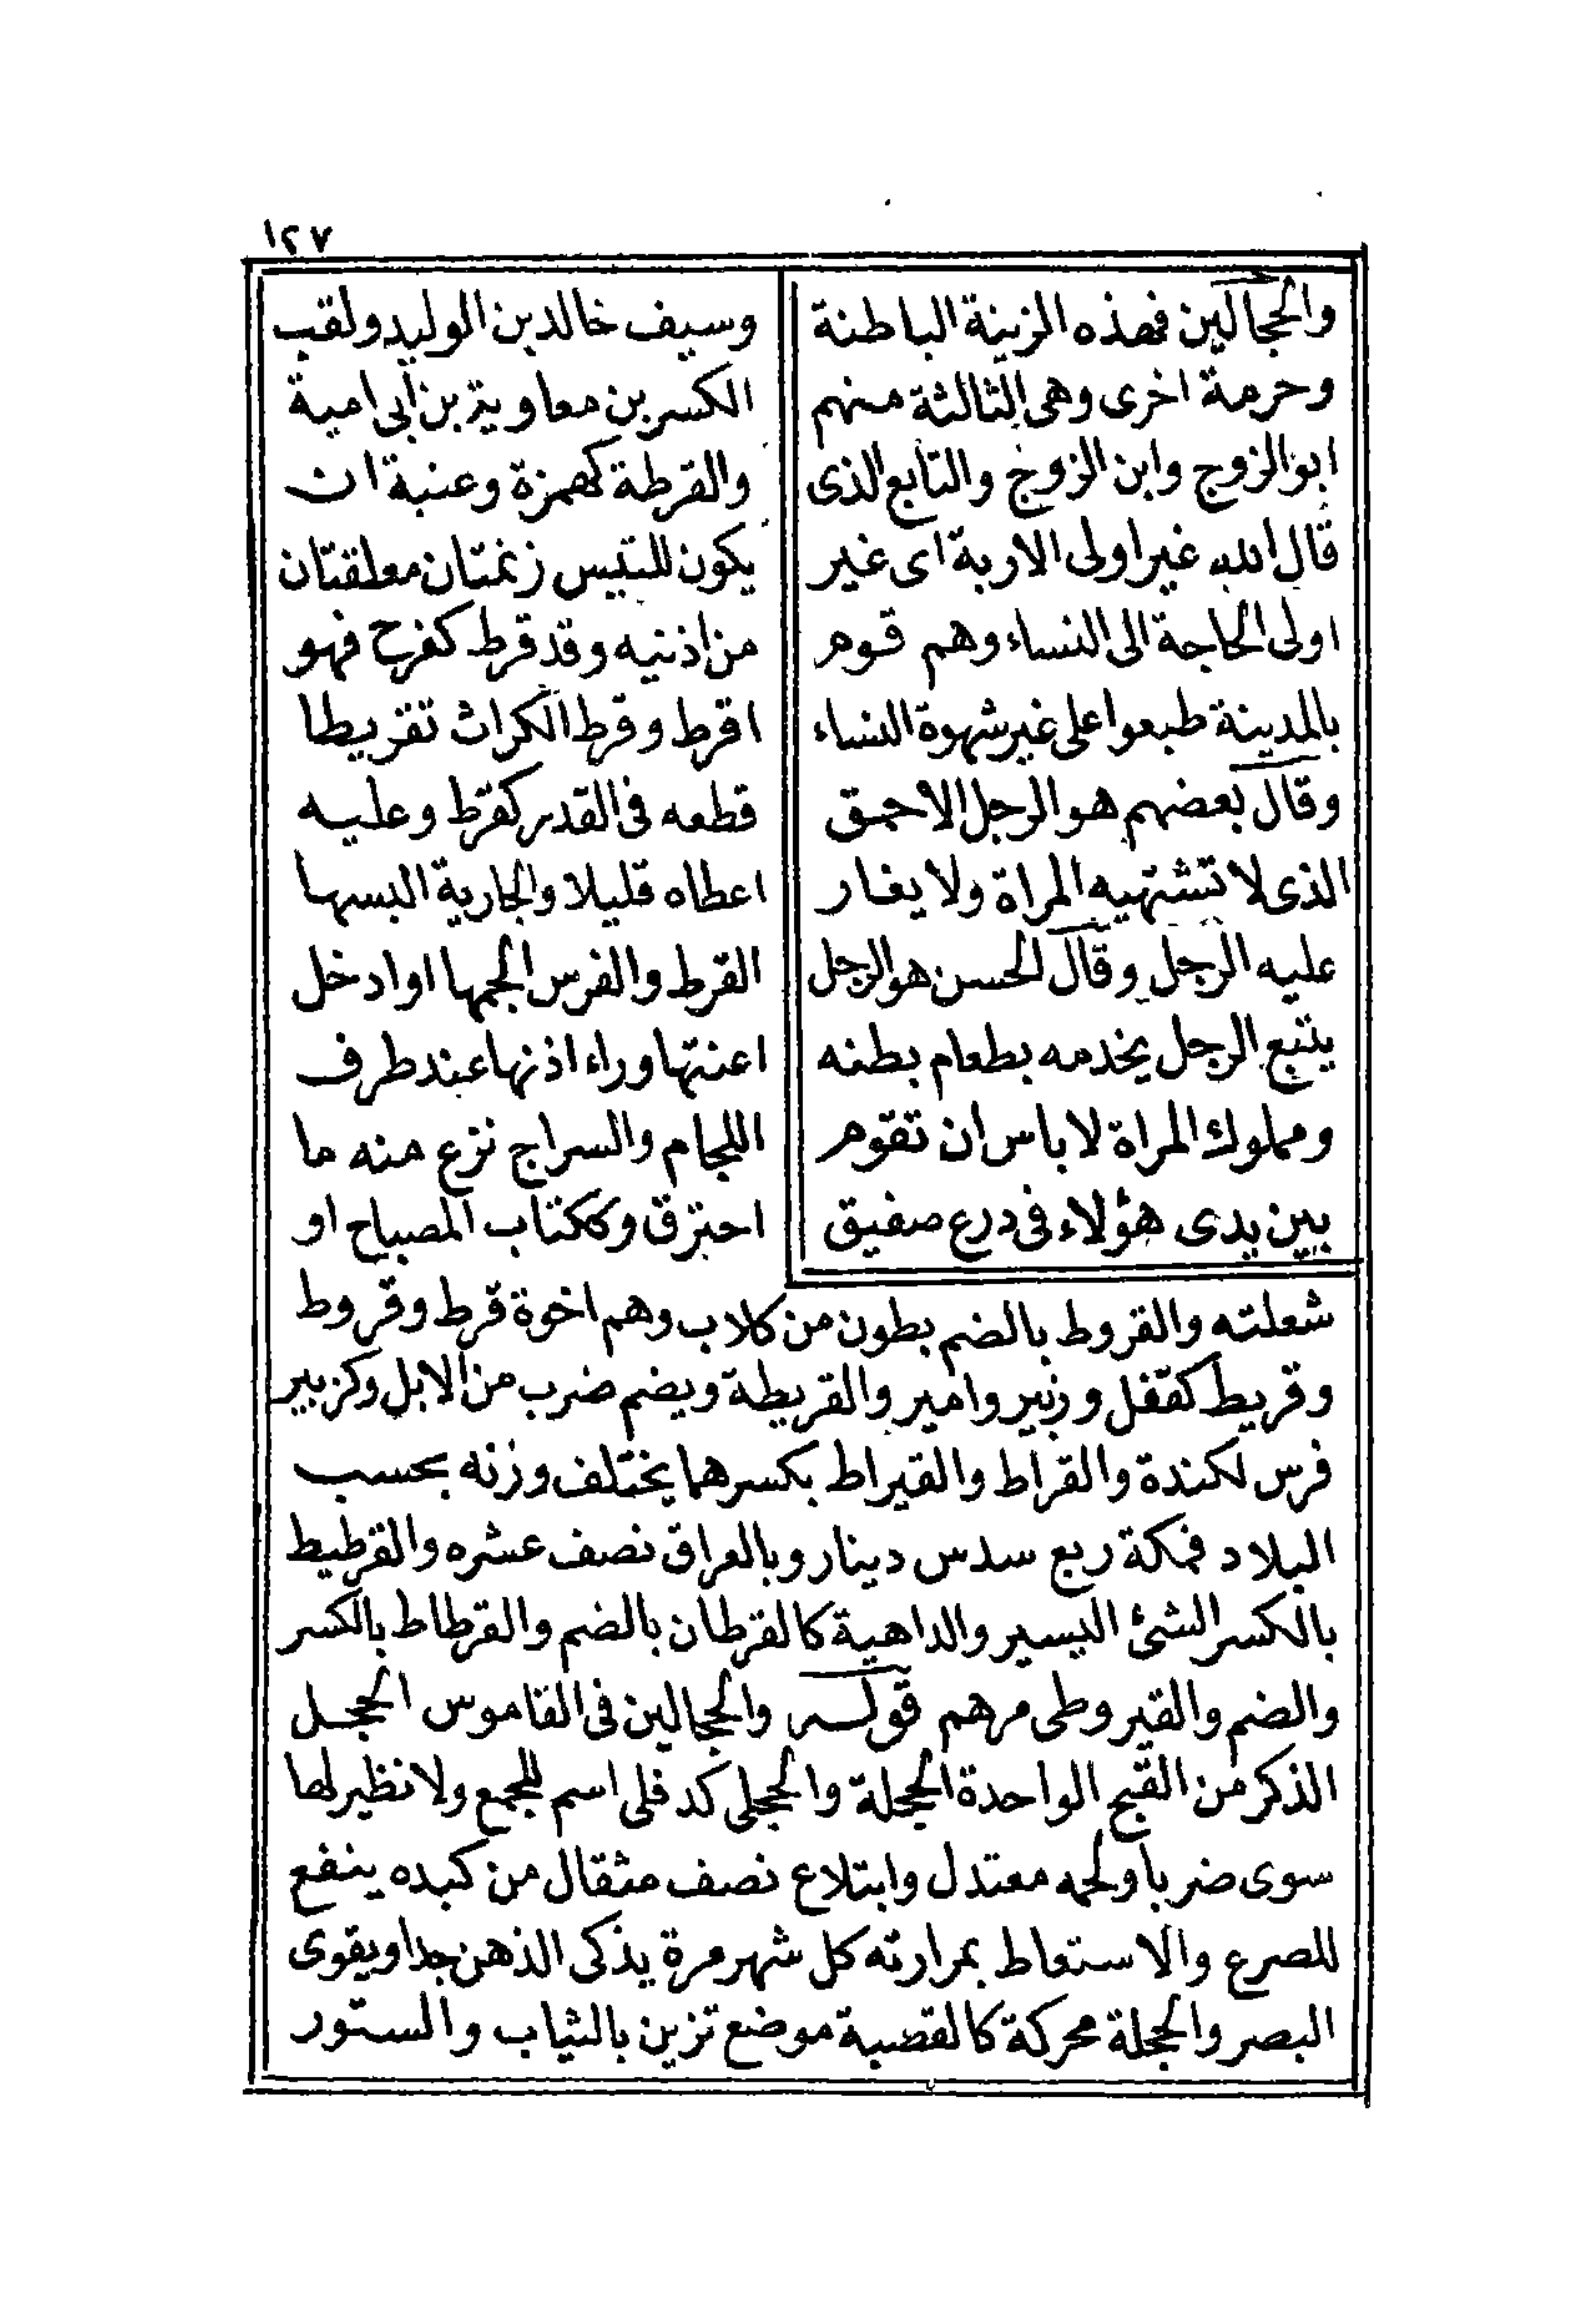 ١٢٧
والحجالين فهذه الزينة الباطنة
وحرمة اخرى وهى الثالثة منهم
ابو الزوج وابن الزوج والتابع الذى
قال الله غير اولى الاربة اى غير
اولى الحاجة الى النساء وهم قوم
بالمدينة طبعوا على غير شهوة النساء
وقال بعضهم هو الرجل الاحمق
الذى لا تشتهيه المراة ولا يغار
عليه الرجل وقال الحسن هو الرجل
يتبع الرجل يخدمه بطعام بطنه
ومملوك المراة لا باس ان تقوم
بين يدى هؤلاء فى درع صفيق
وسيف خالد بن الوليد ولقب
الكسر بن معاوية بن ابى امية
والقرطة كهمزة وعنبة ان
يكون للتيس زنمتان معلقتان
من اذنيه وقد قرط كفرح فهو
اقرط وقرط الكراث تقريطا
قطعه فى القدر كقرط وعليه
اعطاه قليلا والجارية البسها
القرط والفرس الجمها او ادخل
اعنتها وراء اذنها عند طرف
اللجام والسراج نزع منه ما
احترق وككتاب المصباح او
شعلته والقروط بالضم بطون من كلاب وهم اخوة قرط وقروط
وقريط كقفل وزبير وامير والقريطة ويضم ضرب من الابل وكزبير
فرس لكندة والقراط والقيراط بكسرهما يختلف وزنه بحسب
البلاد فمكة ربع سدس دينار وبالعراق نصف عشره والقرطيط
بالكسر الشئ اليسير والداهية كالقرطان بالضم والقرطاط بالكسر
والضم والقيروطى مرهم قوله والحجالين فى القاموس الحجل
الذكر من القبج الواحدة الحجلة والحجلى كدفلى اسم للجمع ولا نظير لها
سوى ضربا ولحمه معتدل وابتلاع نصف مثقال من كبده ينفع
للصرع والاستعاط بمرارته كل شهر مرة يذكى الذهن جدا ويقوى
البصر والحجلة محركة كالقصبة موضع تزين بالثياب والستور